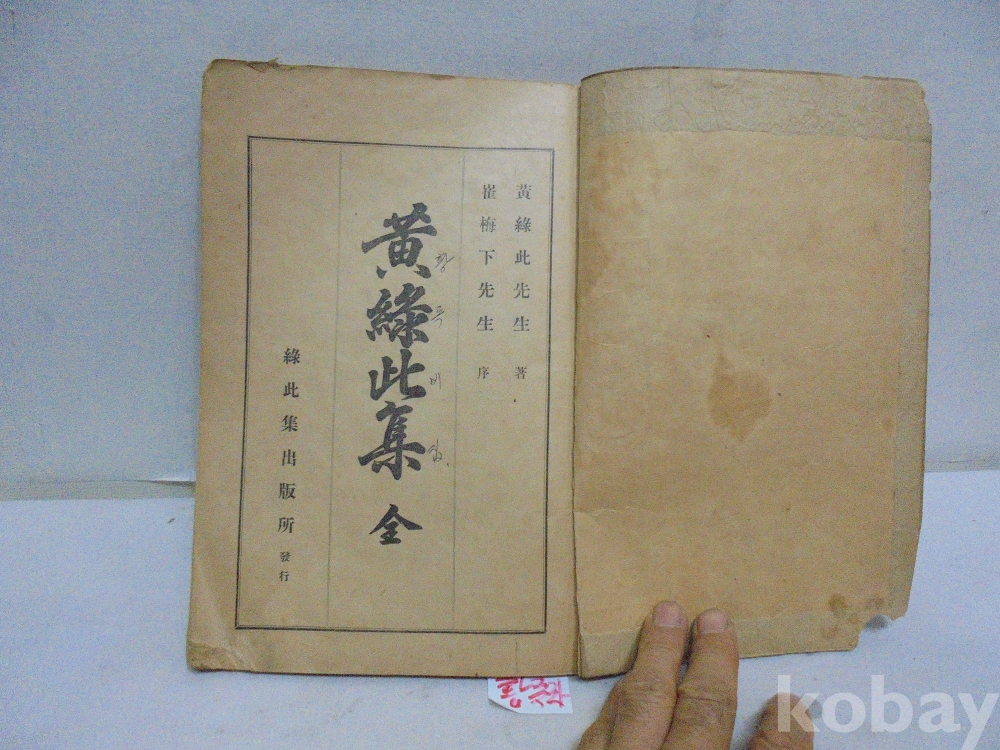 黃綠此先生 著
崔梅下先生 序
黃綠此集 全
황록차집
綠此集出版所 發行
kobay